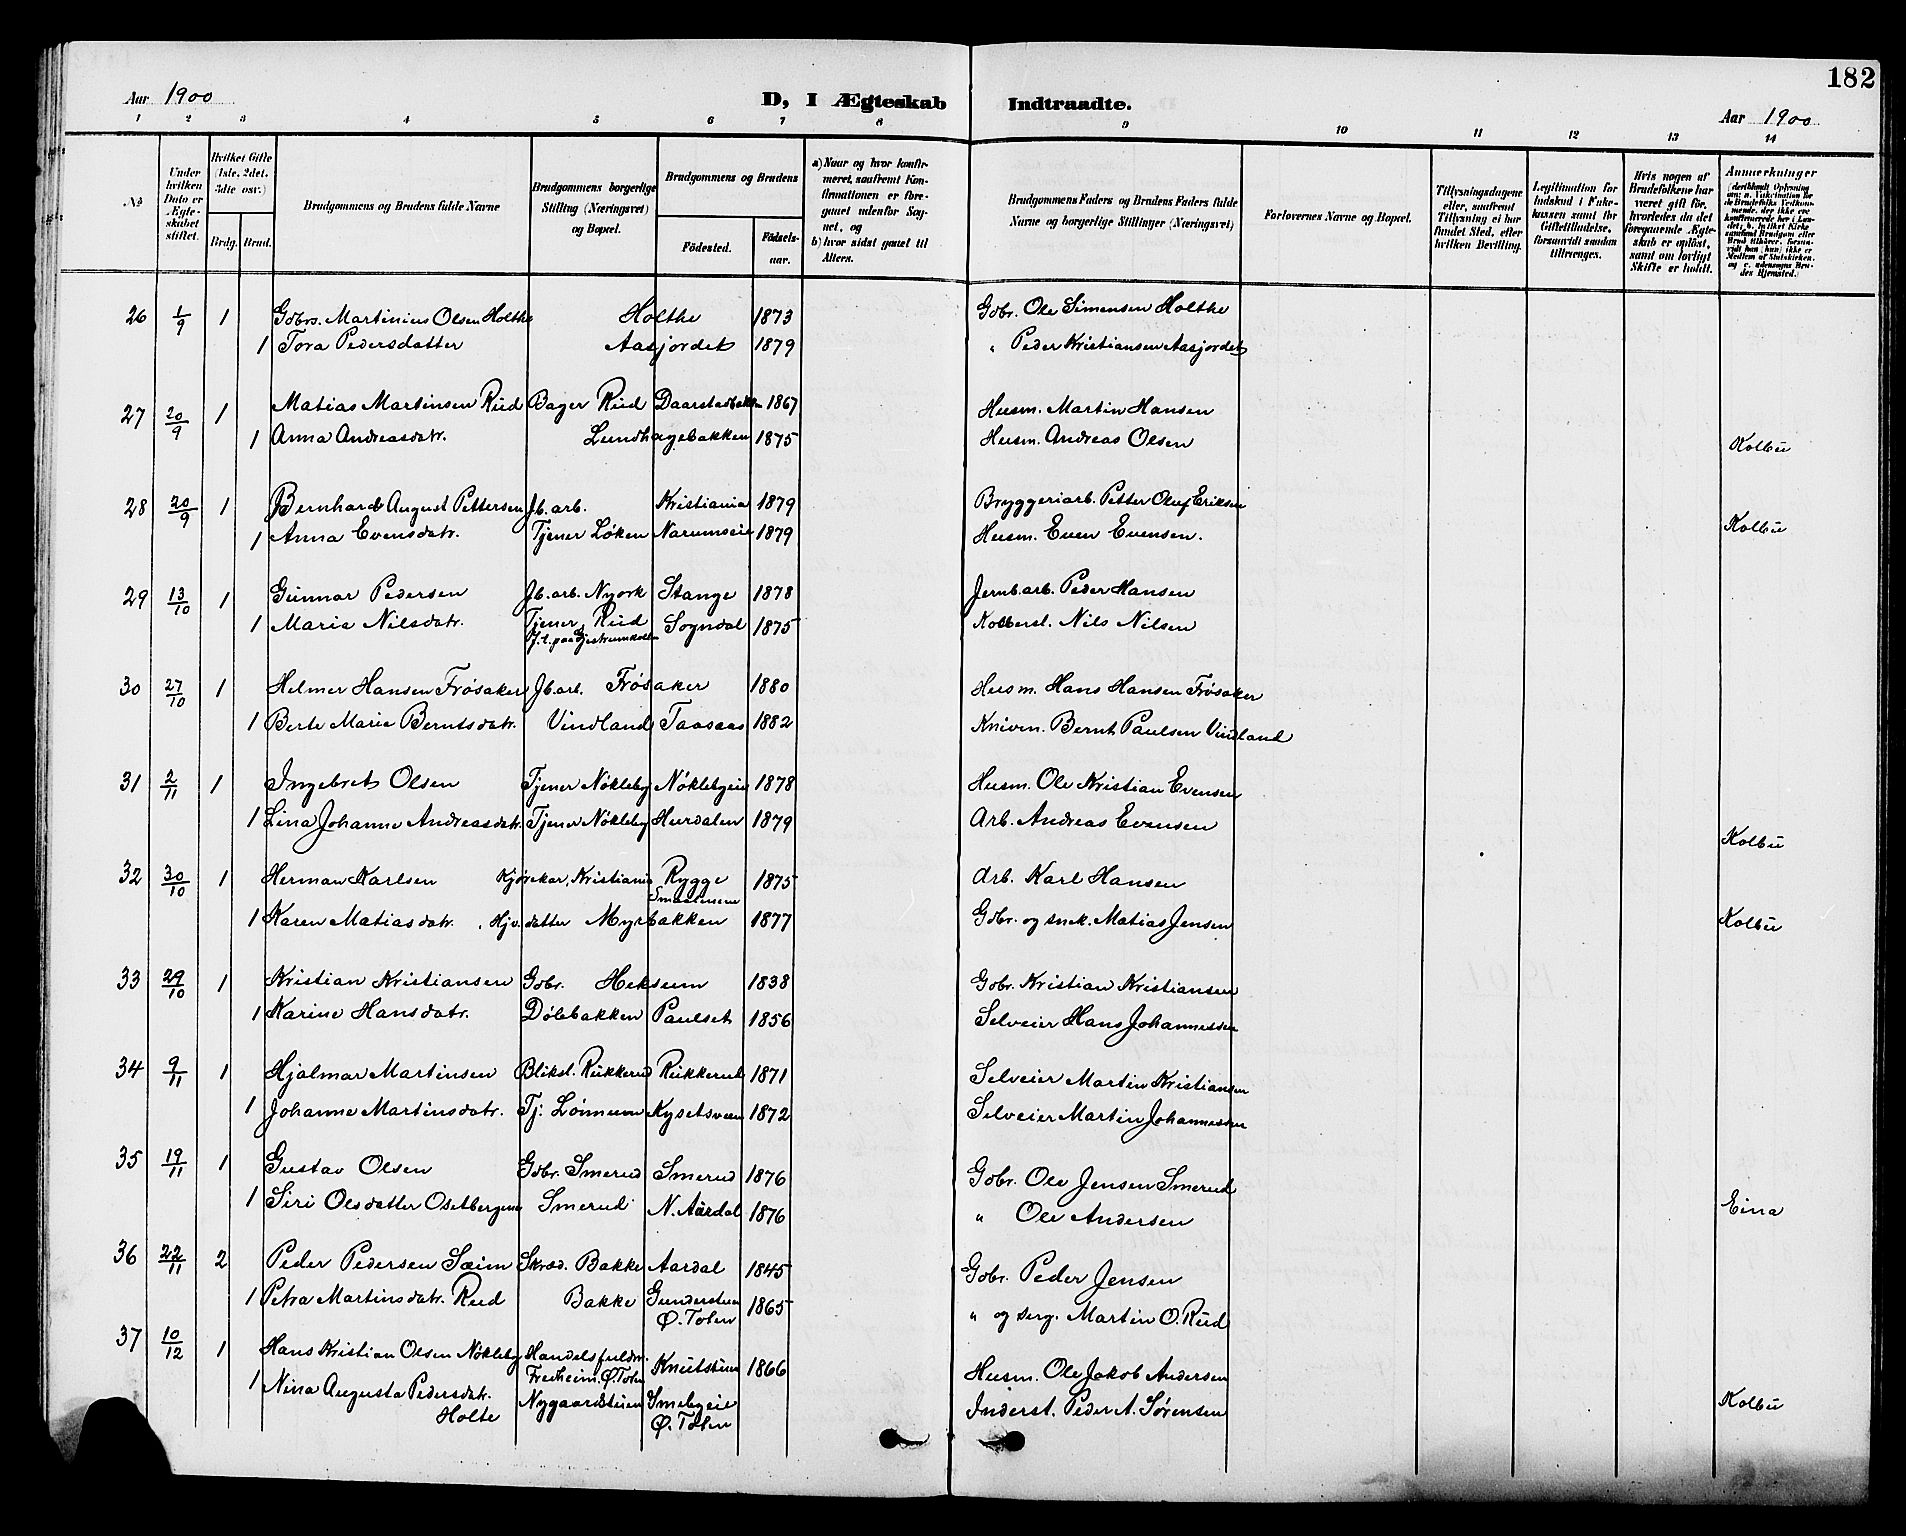 182
Aar 1900
D, I Ægteskab Indtraadte.
Aar 1900
1 2 3 4 5 6 7 8 9 10 11 12 13 14
No
Under hvilken Dato er Ægteskabet stiftet.
Hvilket Gifte (1ste, 2det, 3dte osv.)
Brdg. Brud.
Brudgommens og Brudens fulde Navne
Brudgommens borgerlige Stilling (Næringsvei) og Bopæl.
Brudgommens og Brudens
Födested.
Födselsaar.
a) Naar og hvor konfirmeret, saafremt Konfirmationen er foregaaet udenfor Sognet, og
b) hvor sidst gaaet til Alters.
Brudgommens Faders og Brudens Faders fulde Navne og borgerlige Stillinger (Næringsvei)
Forlovernes Navne og Bopæl.
Tillysningsdagene eller, saafremt Tillysning ei har fundet Sted, efter hvilken Bevilling.
Legitimation for Indskud i Enkekassen samt for Giftetilladelse, forsaavidt saadan tiltrænges.
Hvis nogen af Brudefolkene har været gift för, hvorledes da det foregaaende Ægteskab er oplöst, samt om lovligt Skifte er holdt.
Anmærkninger
26 1/9 1 Gbr. Martinius Olsen Holthe Holthe 1873 Gbr. Ole Simensen Holthe
1 Tora Pedersdatter Aasjordet 1879 " Peder Kristiansen Aasjordet
27 20/9 1 Matias Martinsen Rud Bager Rud Daarstadbakken 1867 Husm. Martin Hansen
1 Anna Andreasdatr. Lundhagebakken 1875 Husm. Andreas Olsen Kolbu
28 20/9 1 Bernhard August Pettersen Jb.arb. Kristiania 1879 Bryggeriarb. Petter Oluf Eriksen
1 Anna Evensdatr. Tjener Løken Narumseie 1879 Husm. Even Evensen. Kolbu
29 13/10 1 Gunnar Pedersen Jb.arb. Nyork Stange 1878 Jernb.arb. Peder Hansen
1 Marie Nilsdatr. Tjener Rud Sogndal 1875 Nils Nilsen
30 27/10 1 Helmer Hansen Frösaker Jb.arb. Frösaker 1880 Husm. Hans Hansen Frösaker
1 Berte Marie Berntsdatr. Vindland Taasaas 1882 Bernt Paulsen Vindland
31 2/11 1 Ingebret Olsen Tjener Nökleby Nöklebyeie 1878 Husm. Ole Kristian Evensen
1 Lina Johanne Andreasdatr. Tjener Nökleby Hurdalen 1879 Arb. Andreas Evensen Kolbu
32 30/10 1 Herman Karlsen Kjørekar, Kristiania Rygge Smaalenene 1875 Arb. Karl Hansen
1 Karen Matiasdatr. Hjv. datter Myrbakken 1877 Gbr. og snek. Matias Jensen Kolbu
33 29/10 1 Kristian Kristiansen Gbr. Heksum 1838 Gbr. Kristian Kristiansen
1 Karine Hansdatr. Dølebakken Paulset 1856 Selveier Hans Johannessen
34 9/11 1 Hjalmar Martinsen Bliksl. Rukkerud Rukkerud 1871 Selveier Martin Kristiansen
1 Johanne Martinsdatr. Tj. 1872 Selveier Martin Johannessen
35 19/11 1 Gustav Olsen Gbr. Smerud Smerud 1876 Gbr. Ole Jensen Smerud
1 Siri Olsdatter Smerud N. Aurdal 1876 " Ole Andersen Eina
36 22/11 2 Peder Pedersen Sæim Skræd. Bakke Aardal 1845 Gbr. Peder Jensen
1 Petra Martinsdatr. Rud Bakke Ø. Toten 1865 " og serg. Martin O. Rud
37 10/12 1 Hans Kristian Olsen Nökleby Handelsfuldm. Fredheim, Ø. Toten Knutstuen 1866 Husm. Ole Jakob Andersen
1 Nina Augusta Pedersdatr. Holte Nygaardstuen Smebyeie Ø. Toten Inderst. Peder A. Sørensen Kolbu